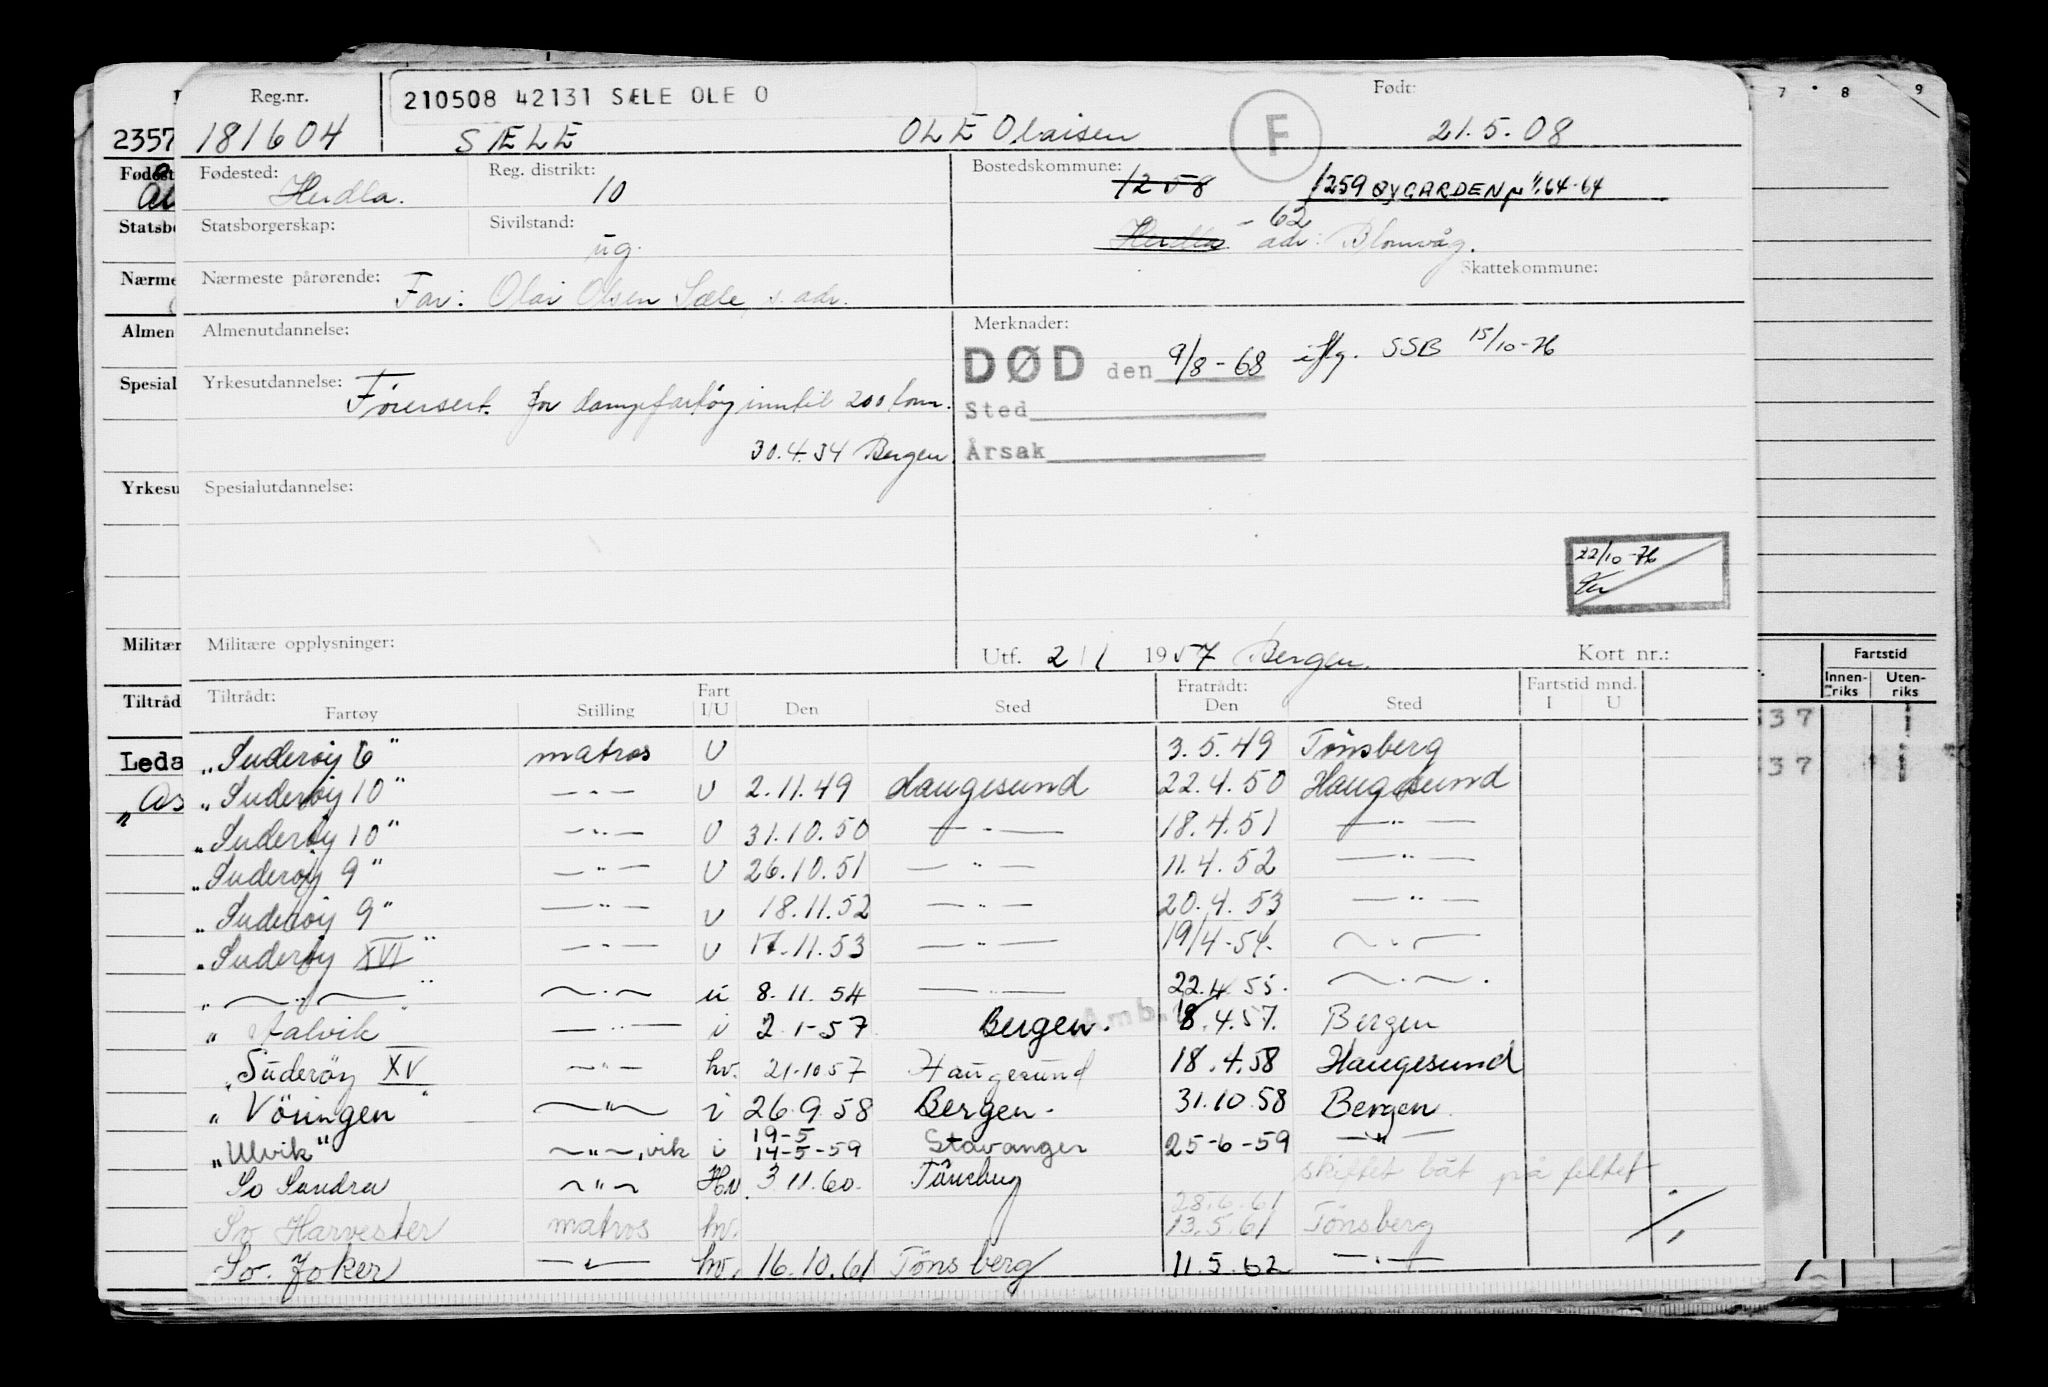 Reg.nr.
210508 42131 SÆLE OLE O
Født:
2357 181604 SÆLE OLE Olaisen F 21.5.08
7 8 9
Fødested: Herdla.
Reg. distrikt: 10
Bostedskommune: 1258 1259 ØYGARDEN 1/1.64-64
Statsborgerskap:
Sivilstand: ug.
Herdla - 62 adr: Blomvåg.
Skattekommune:
Nærmeste pårørende: Far: Olai Olsen Sæle, s. adr.
Almenutdannelse:
Merknader:
DØD den 9/8-68 iflg. SSB 15/10-76
Yrkesutdannelse: Førersert. for dampfartøy inntil 200 tonn.
Sted
30.4.34 Bergen
Årsak
Spesialutdannelse:
22/10-76
Militære opplysninger:
Utf. 2/1 1957 Bergen.
Kort nr.:
Fartstid
Innen-riks Uten-riks
Tiltrådt: Fartøy Stilling Fart I/U Den Sted Fratrådt: Den Sted Fartstid mnd. I U
"Suderøy 6" matros U 3.5.49 Tönsberg
"Suderøy 10" —"— U 2.11.49 Haugesund 22.4.50 Haugesund
"Suderøy 10" —"— U 31.10.50 —"— 18.4.51 —"—
"Suderøy 9" —"— U 26.10.51 —"— 11.4.52 —"—
"Suderøy 9" —"— U 18.11.52 —"— 20.4.53 —"—
"Suderøy XVI" —"— U 17.11.53 —"— 19/4-54. —"—
"—"—" —"— u 8.11.54 —"— 22.4.55. —"—.
"Aalvik" —"— i 2.1-57 Bergen. 18.4.57. Bergen
"Süderöy XV" —"— hv. 21-10 57 Haugesund 18.4.58 Haugesund
"Vöringen" —"— i 26.9.58 Bergen. 31.10.58 Bergen
"Ulvik" —"—, vik i 19-5 14-5-59 Stavanger 25-6-59 —"—
So Sandra —"— Hv. 3.11.60. Tönsberg skiftet båt på feltet
28.6.61
So Harvester matros hv. 13.5.61 Tönsberg
So. Joker —"— hv. 16.10.61 Tönsberg 11.5.62 —"—
Fødest
Statsbo
Nærme
Almen
Spesial
Yrkesu
Militær
Tiltråd
Leda
"As
37
37